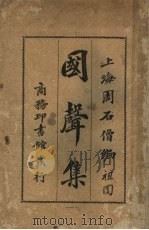 上海周石僧編祖同
國聲集
商務印書館代刊